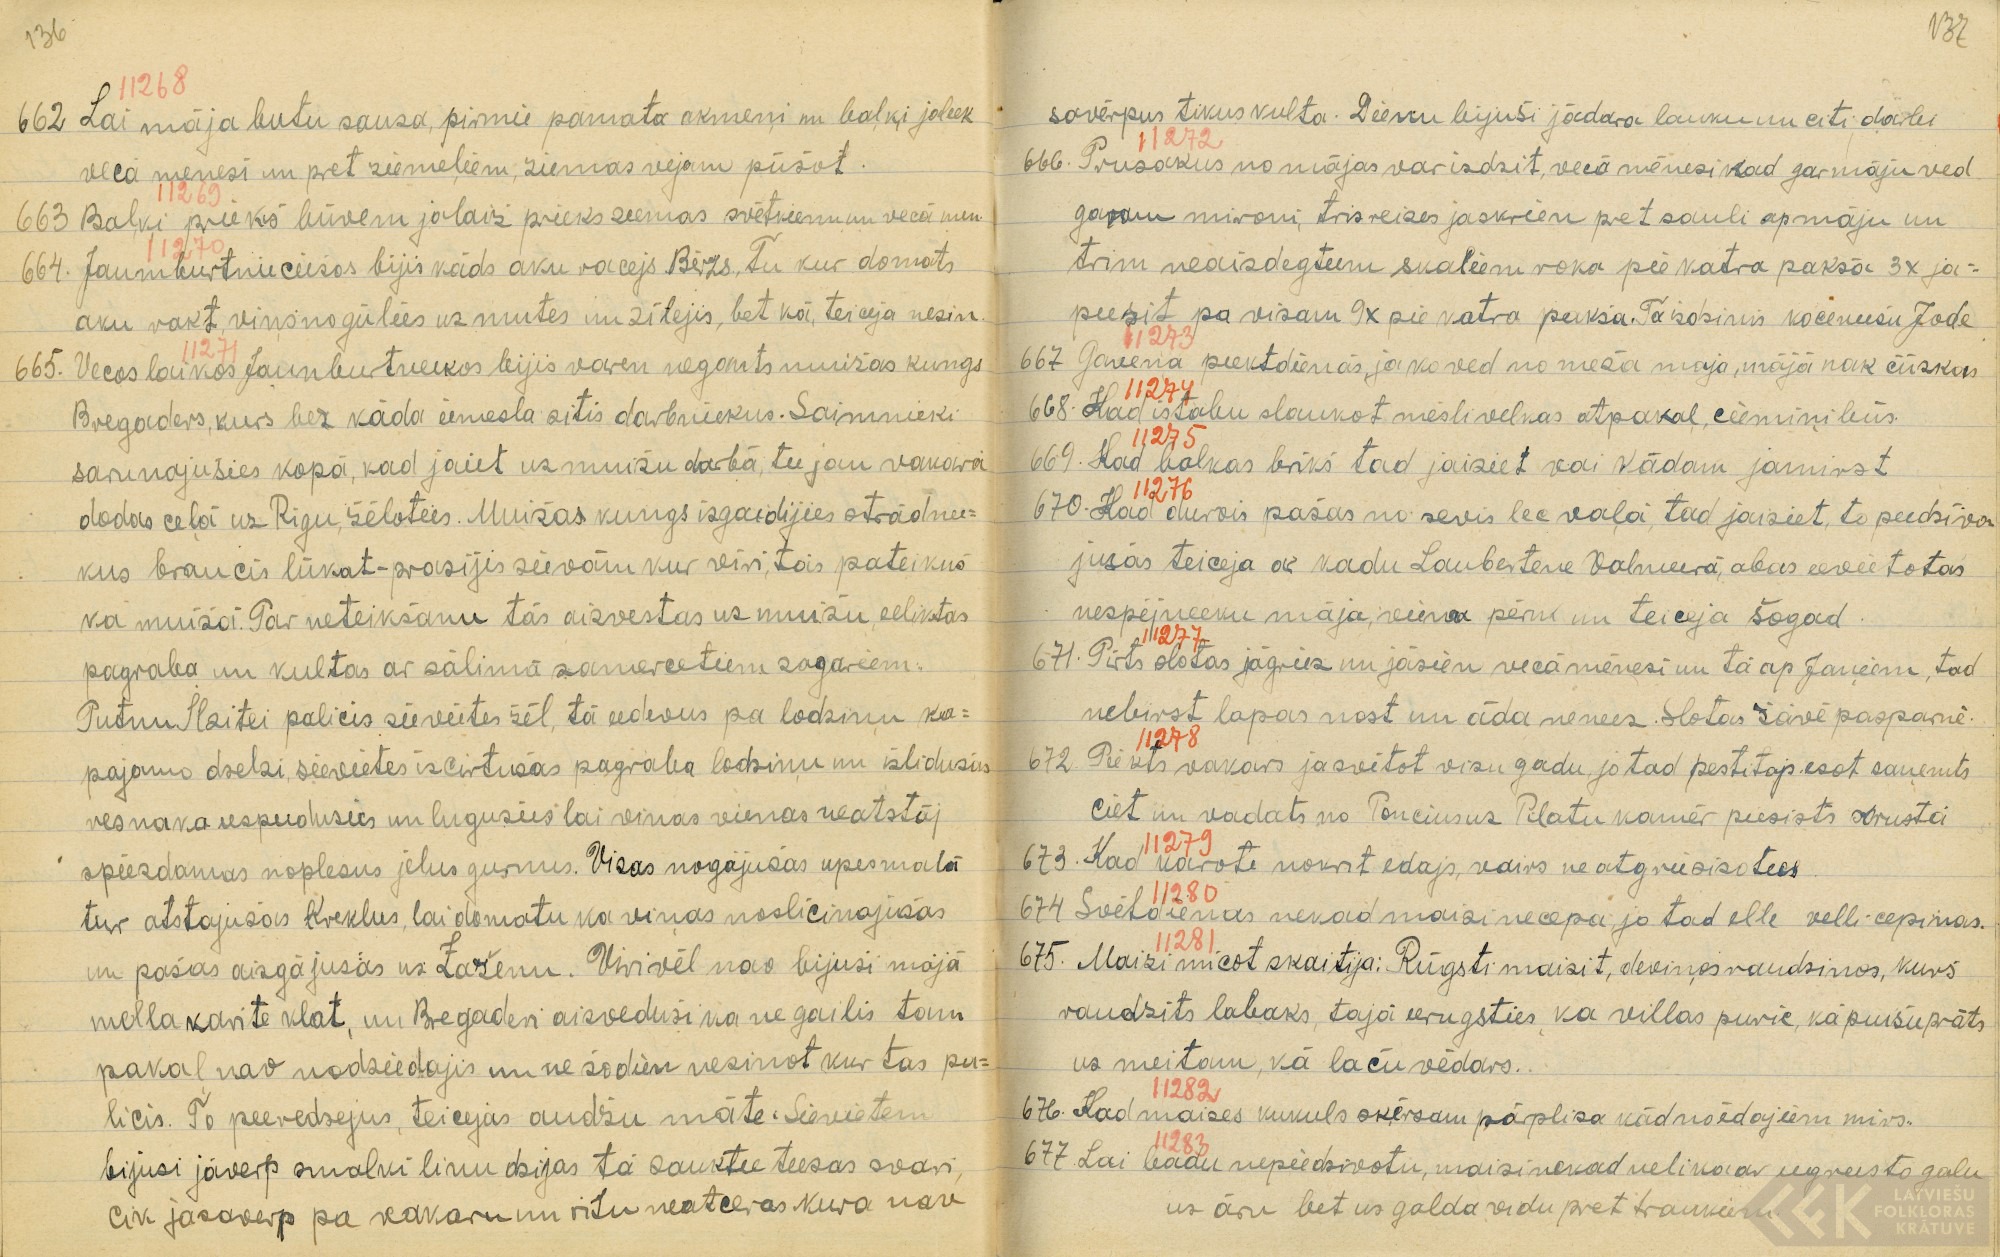 136
11268
662 Lai māja butu sausa, pirmie pamata akmeņi un baļķi jaleek
vecā menesi un pret ziemeļiem, ziemas vejam pūšot.
11269
663 Baļķi priekš būvem jalaiž prieks seemas svētkiem un vecā men.
11270
664. Jaunburtnieciešos bijis kāds aku racejs Bērzs, Tu kur domāts
aku rakt, viņš nogūlies uz mutes un zīlejis, bet kā, teiceja nezin.
11271
665. Vecos laikos Jaunburtneekos bijis varen negants muižas kungs
Bregaders, kurs bez kāda iemesla sitis darbniekus. Saimnieki
sarunajušies kopā, kad jaiet uz muižu darbā, tee jau vakarā
dodas ceļā uz Rigu, žēlotees. Muižas kungs izgaidijies strādnee=
kus braucis lūkat-prasījis sievām kur vīri, tās pateikuš
ka muižā. Par neteikšanu tās aizvestas uz muižu, eeliktas
pagraba un kultas ar sālimā samercetiem zagariem.
Putnu Ilzitei palicis sieviētes žēl, tā eedevus pa lodziņu ka=
pajamo dzelzi, sievietes izcirtušas pagraba lodziņu un izlidušas
resnaka eespeedusies un lugusies lai viņas vienas neatstāj
spiezdamas noplesus jēlus gurnus. Visas nogājušas upesmalā
tur atstajušas kreklus, lai domatu ka viņas noslicinajušas
un pašas aizgājušas uz Lažemu. Vīri vēl nav bijusi mājā
mella karite klat, un Bregaderi aizvedusi ka ne gailis tam
pakaļ nav nodziedajis un ne šodien nezinot kur tas pa=
licis. To peeredzejus, teicejas audžu māte. Sievietem
bijusi jāverp smalki linu dzijas tā sauktee teesas svari,
cik jasaverp pa vakaru un ritu neatceras kura nav
137
savērpus tikus kulta. Dienu bijuši jādara lauku un citi darbi
11272
666. Prusakus no mājas var izdzit, vecā mēnesi kad gar māju ved
garam mironi, trisreizes jaskrien pret sauli ap māju un
trim neaizdegteem skaliem roka pie katra paksa 3x ja=
peesit pa visam 9x pie katra paksa. Tā izdzinis kocēneešu Jode
11273
667 Gavēna peektdienās, ja ko ved no meža maja, mājā nak čūskas
11274
668. Kad istabu slaukot mēsli velkas atpakaļ, ciemiņi būs.
11275
669. Kad balkas brīkš tad jaiziet vai kādam jamirst
11276
670. Kad durvis pašas no sevis lee vaļā, tad jaiziet, to peedzīva
jusās teiceja ar kadu Laubertene Valmeerā, abas eevietotas
nespējneeku māja, viena pērn un teiceja šogad.
11277
671. Pirts slotas jāgriez un jāsien vecā mēnesi un tā ap Jaņiem, tad
nebirst lapas nost un āda neneez. Slotas žāvē pasparnē.
11278
672 Piekts vakars jasvētot visu gadu, jo tad pestitajs esot saņemts
ciet un vadats no Poncius uz Pilatu kamēr peesists krustā
11279
673. Kad karote nokrīt edajs, vairs neatgriezisotees
11280
674 Svētdienas nekad maizi necepa, jo tad elle velli cepinas.
11281
675. Maizi mīcot skaitija: Rūgsti maizit, deviņos raudziņos, kurš
raudzits labaks, tajā eerugsties, ka villas puriė, kā puišu prāts
uz meitam, kā laču vēdars.
11282
676. Kad maizes kukuls skērsam pārplisa kād no ēdajiem mirs.
11283
677 Lai badu nepiedzivotu, maizi nekad nelika ar eegreesto galu
uz āru bet uz galda vidu pret traukiem
LATVIEŠU
FOLKLORAS
KRĀTUVE